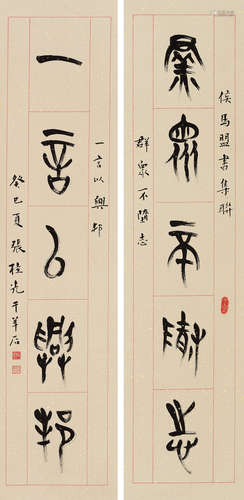 侯馬盟書集聯
群衆不墮志
群衆不墮志
一言以興邦
一言以興邦
癸巳夏張桂光于羊石